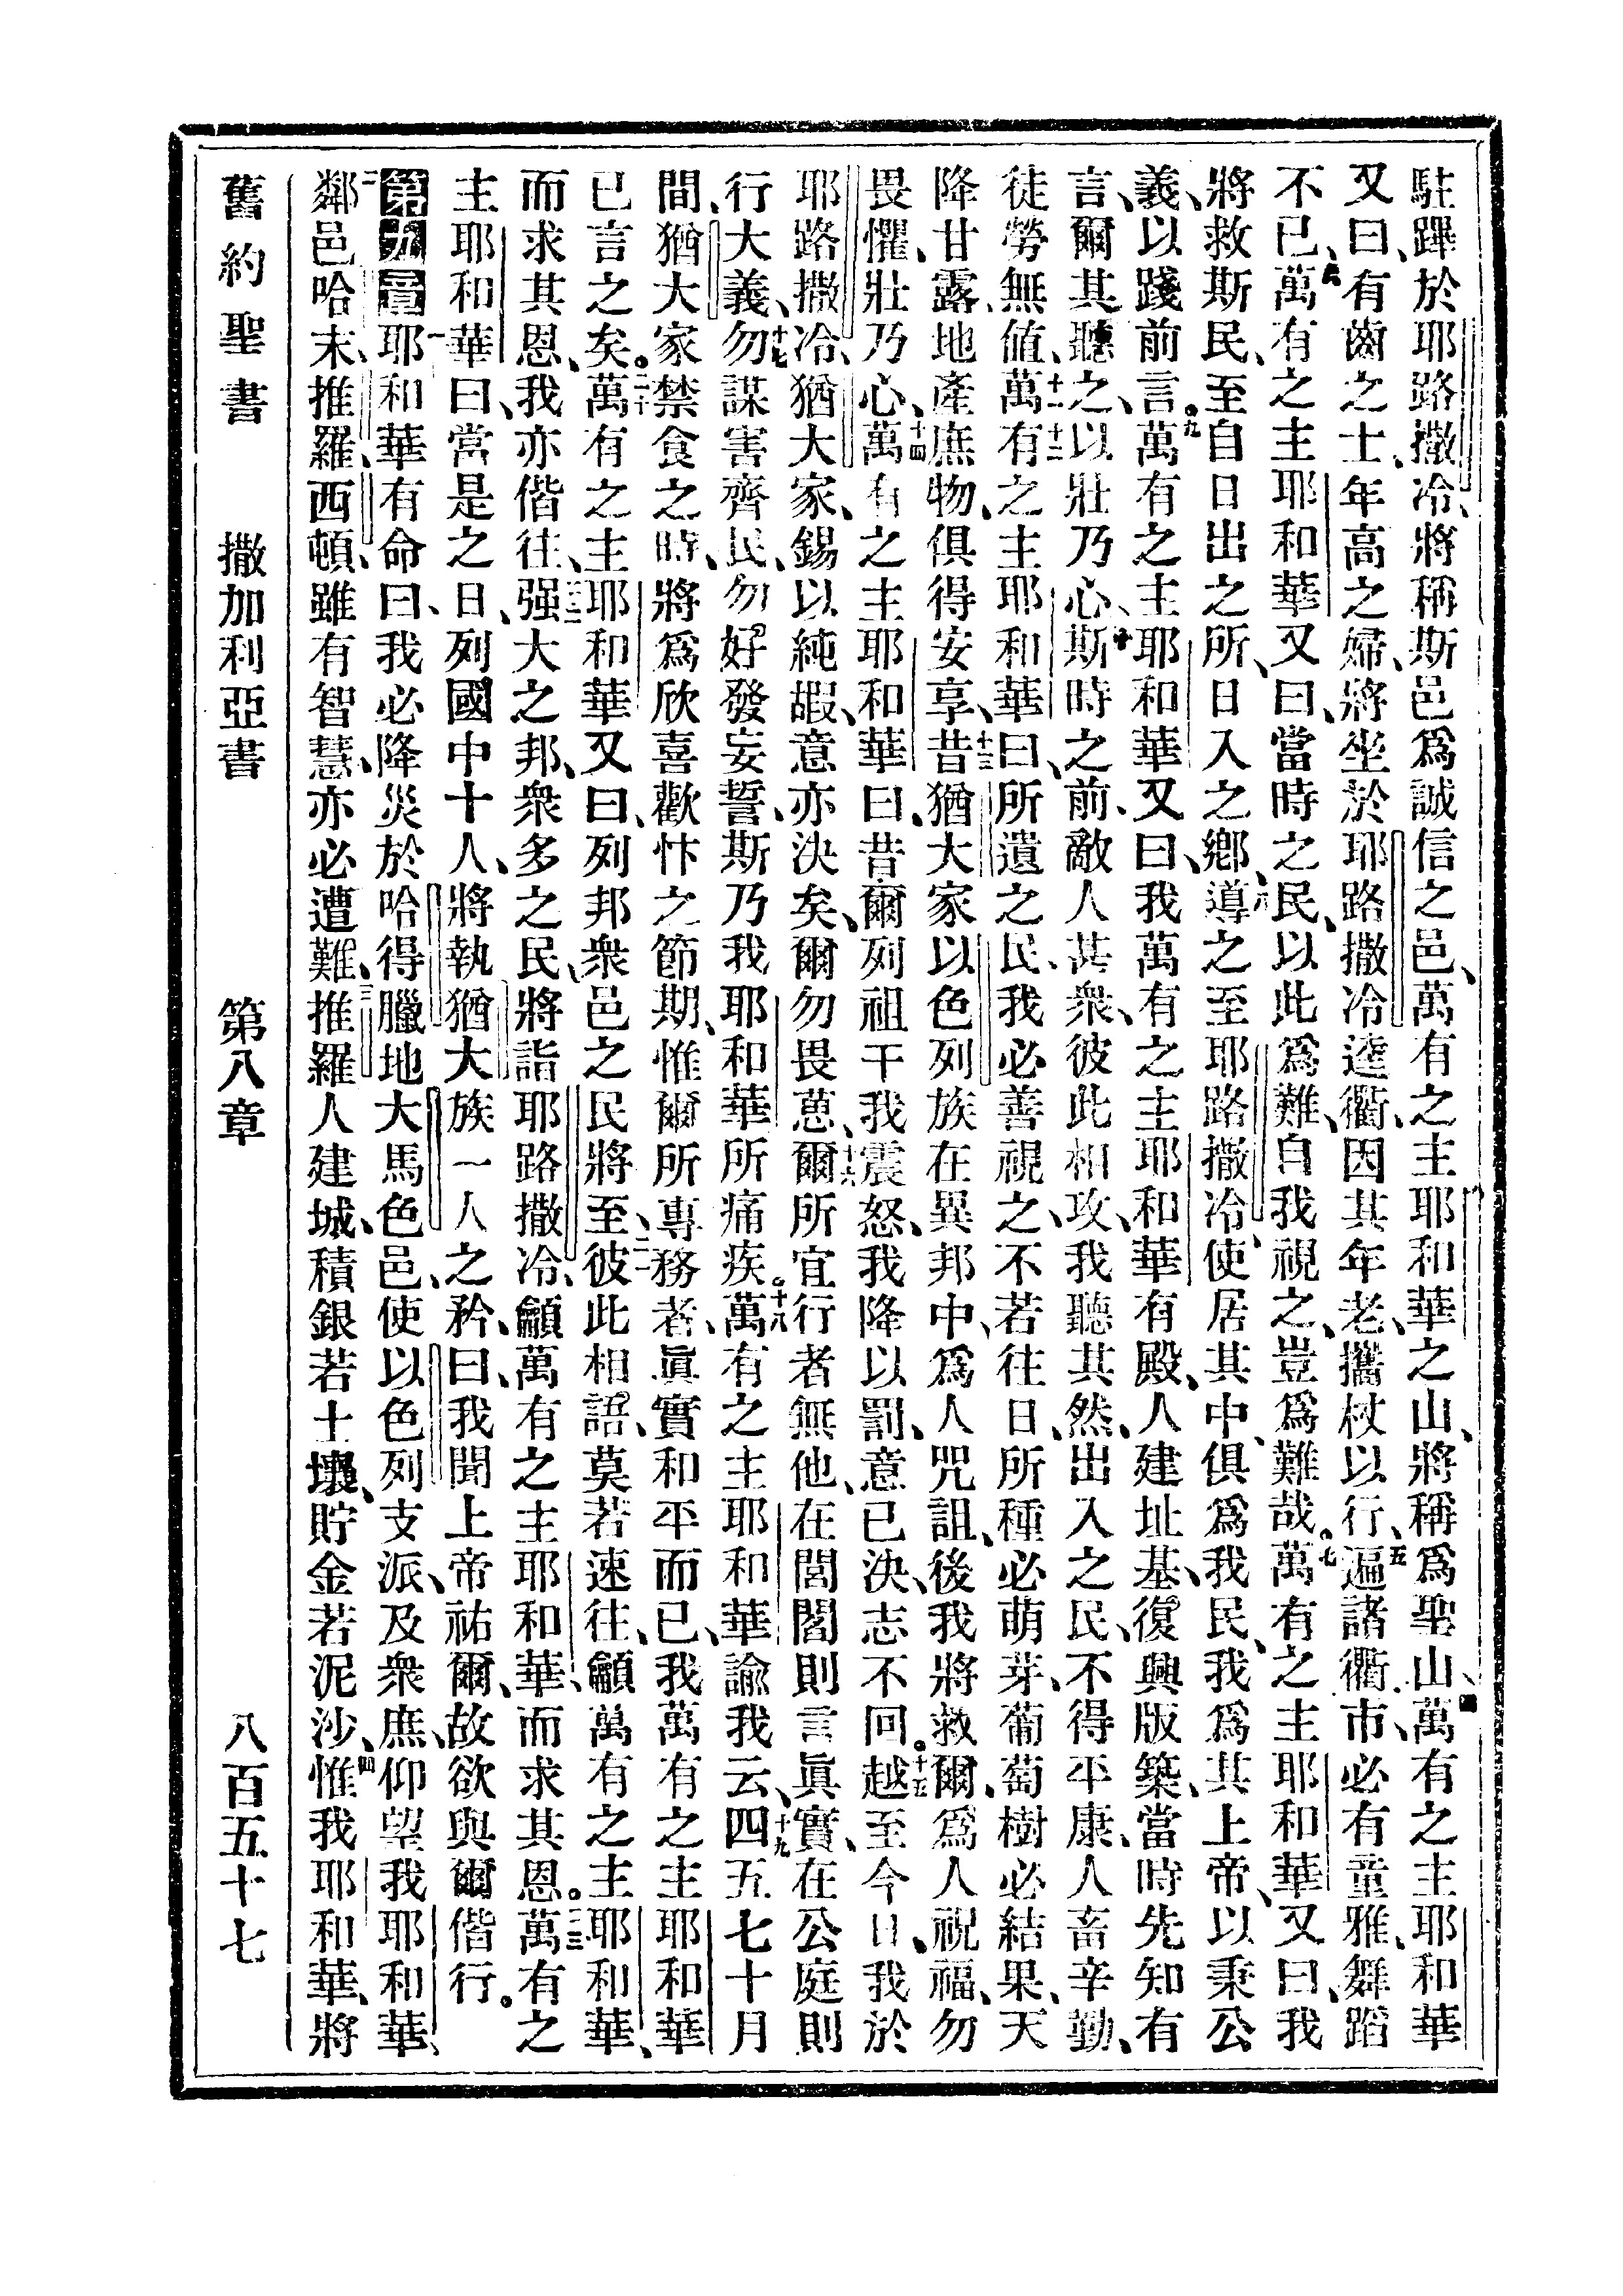 駐蹕於耶路撒冷、將稱斯邑爲誠信之邑、萬有之主耶和華之山、將稱爲聖山、四萬有之主耶和華
又曰、有齒之士、年高之婦、將坐於耶路撒冷逵衢、因其年老、攜杖以行、五遍諸衢市、必有童雅、舞蹈
不已、六萬有之主耶和華又曰、當時之民、以此爲難、自我視之、豈爲難哉。七萬有之主耶和華又曰、我
將救斯民、至自日出之所、日入之鄉、八導之至耶路撒冷、使居其中、俱爲我民、我爲其上帝、以秉公
義、以踐前言。九萬有之主耶和華又曰、我萬有之主耶和華有殿、人建址基、復興版築、當時先知有
言、爾其聽之、以壯乃心、十斯時之前、敵人甚衆、彼此相攻、我聽其然、出入之民、不得平康、人畜辛勤、
徒勞無値、十一萬有之主耶和華曰、所遺之民、我必善視之、不若往日、十二所種必萌芽、葡萄樹必結果、天
降甘露、地產庶物、俱得安享、十三昔猶大家以色列族在異邦中、爲人咒詛、後我將救爾、爲人祝福、勿
畏懼、壯乃心、十四萬有之主耶和華曰、昔爾列祖干我震怒、我降以罰、意已決、志不回。十五越至今日、我於
耶路撒冷、猶大家、錫以純嘏、意亦決矣、爾勿畏葸、十六爾所宜行者無他、在閭閻則言眞實、在公庭則
行大義、十七勿謀害齊民、勿好發妄誓、斯乃我耶和華所痛疾。十八萬有之主耶和華諭我云、十九四五七十月
間、猶大家禁食之時、將爲欣喜歡忭之節期、惟爾所專務者、眞實和平而已、我萬有之主耶和華
已言之矣。二十萬有之主耶和華又曰、列邦衆邑之民將至、二一彼此相語、莫若速往、籲萬有之主耶和華、
而求其恩、我亦偕往、二二强大之邦、衆多之民、將詣耶路撒冷、籲萬有之主耶和華、而求其恩。二三萬有之
主耶和華曰、當是之日、列國中十人、將執猶大族一人之矜、曰、我聞上帝祐爾、故欲與爾偕行。
第九章一耶和華有命曰、我必降災於哈得臘地大馬色邑、使以色列支派、及衆庶、仰望我耶和華、
二鄰邑哈末、推羅、西頓、雖有智慧、亦必遭難、三推羅人建城、積銀若土壤、貯金若泥沙、四惟我耶和華、將
舊約聖書　撒加利亞書　第八章　八百五十七